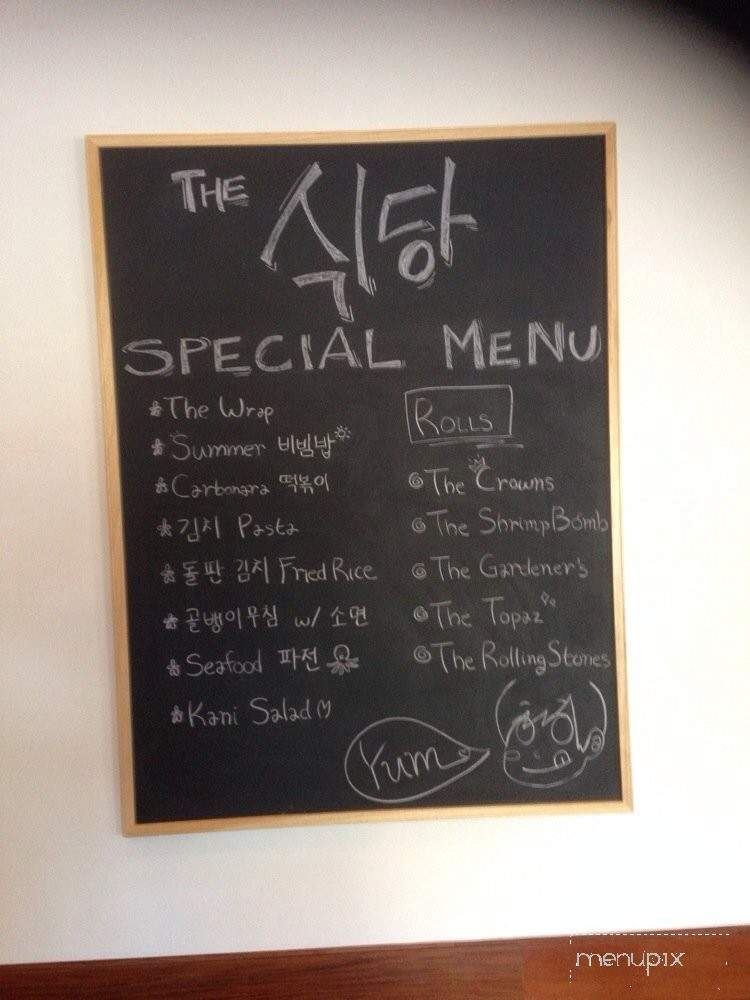 THE 식당
SPECIAL MENU
The Wrap
Summer 비빔밥
Carbonara 떡볶이
김치 Pasta
돌판 김치 Fried Rice
골뱅이무침 w/ 소면
Seafood 파전
Kani Salad
ROLLS
The Crowns
The Shrimp Bomb
The Gardener's
The Topaz
The Rolling Stones
Yum
menupix